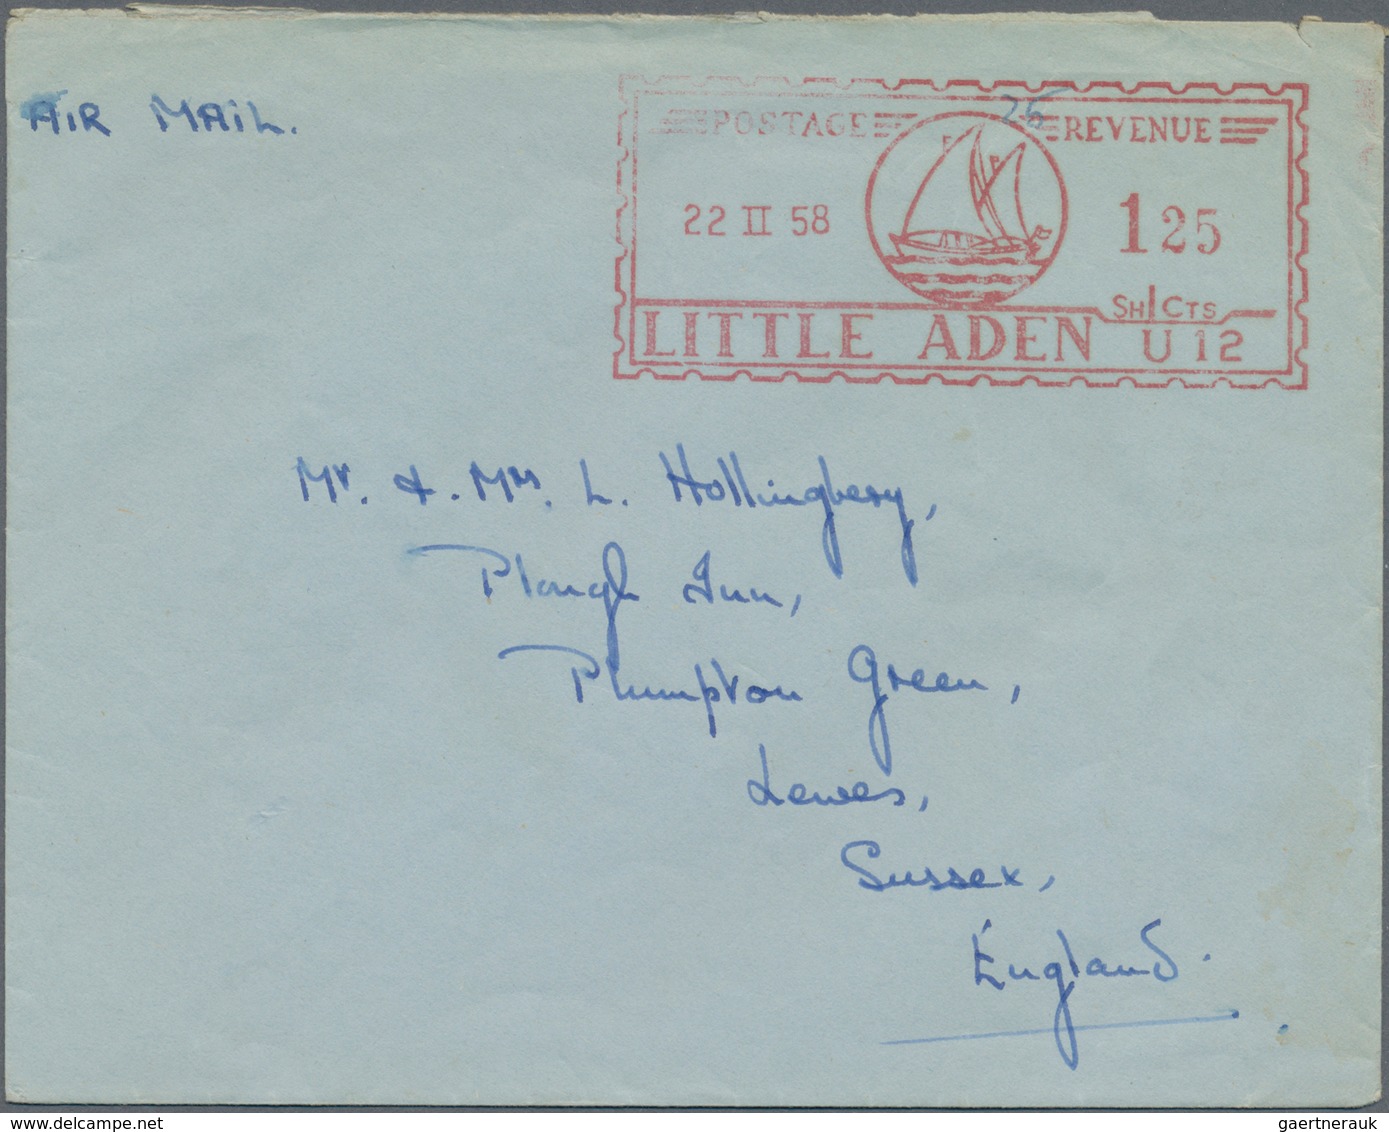 AIR MAIL.
26
POSTAGE REVENUE
22 II 58
1 25
SH/CTS
LITTLE ADEN U 12
Mr. & Mrs. L. Hollingbery,
Plough Inn,
Plumpton Green,
Lewes,
Sussex,
England.
gaertnerauk